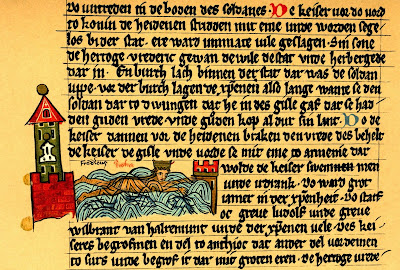 vo untreden in de boden des soldanes. De keiser vor do vord
to konin de heidenen stridden mit eme unde worden sege
los bi der stat. ere ward ummate vile geslagen. Sin sone
de hertoge vrederic gewan de wile de stat unde herbergede
dar in. En burch lach binnen der stat dar was de soldan
uppe. vor der burch lagen de xpenen also lange wante se den
soldan dar to dwungen dat he in des gisle gaf dat se had
den guden vrede unde guden kop al dur sin lant. Do de
keiser dannen vor de heidenen braken den vrede des behelt
de keiser de gisle unde vorde se mit eme to armenie dar
Fridericus
wolde de keiser swemmen
unde irdranc. Do ward grot
iamer in der xpenheit. Do starf
oc greve ludolf unde greve
wilbrant van halremunt unde der xpenen vele. Des kei
seres begrof men en del to anthioc dat ander del vorden men
to surs unde begrof it dar mit groten eren. De hertoge vrede